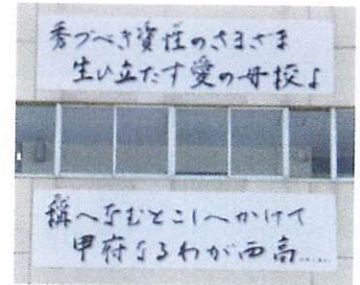 秀づべき資性のさまざま
生ひ立たす愛の母校よ
稱へなむとこしへかけて
甲府なるわが西高……